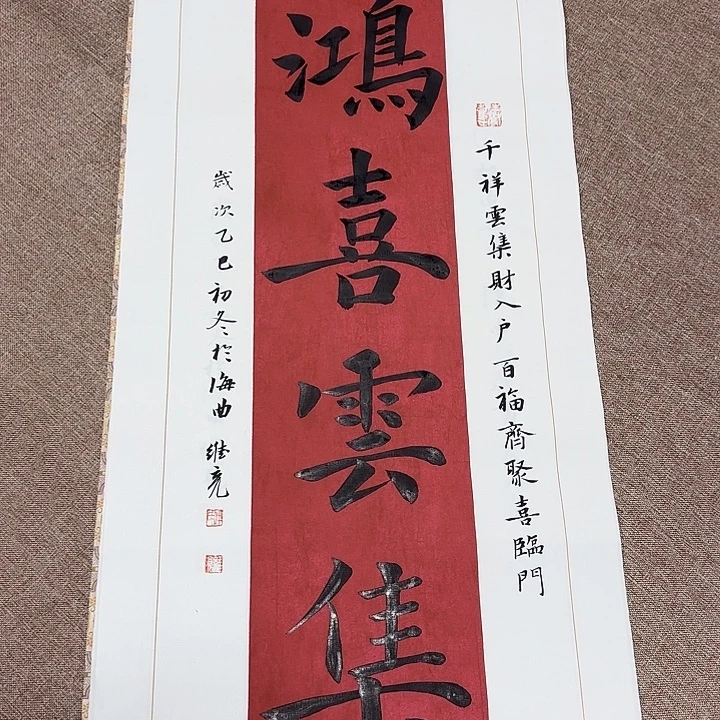 千祥雲集財入户百福齊聚喜臨門
鴻喜雲集
歲次乙巳初冬於海曲 維亮